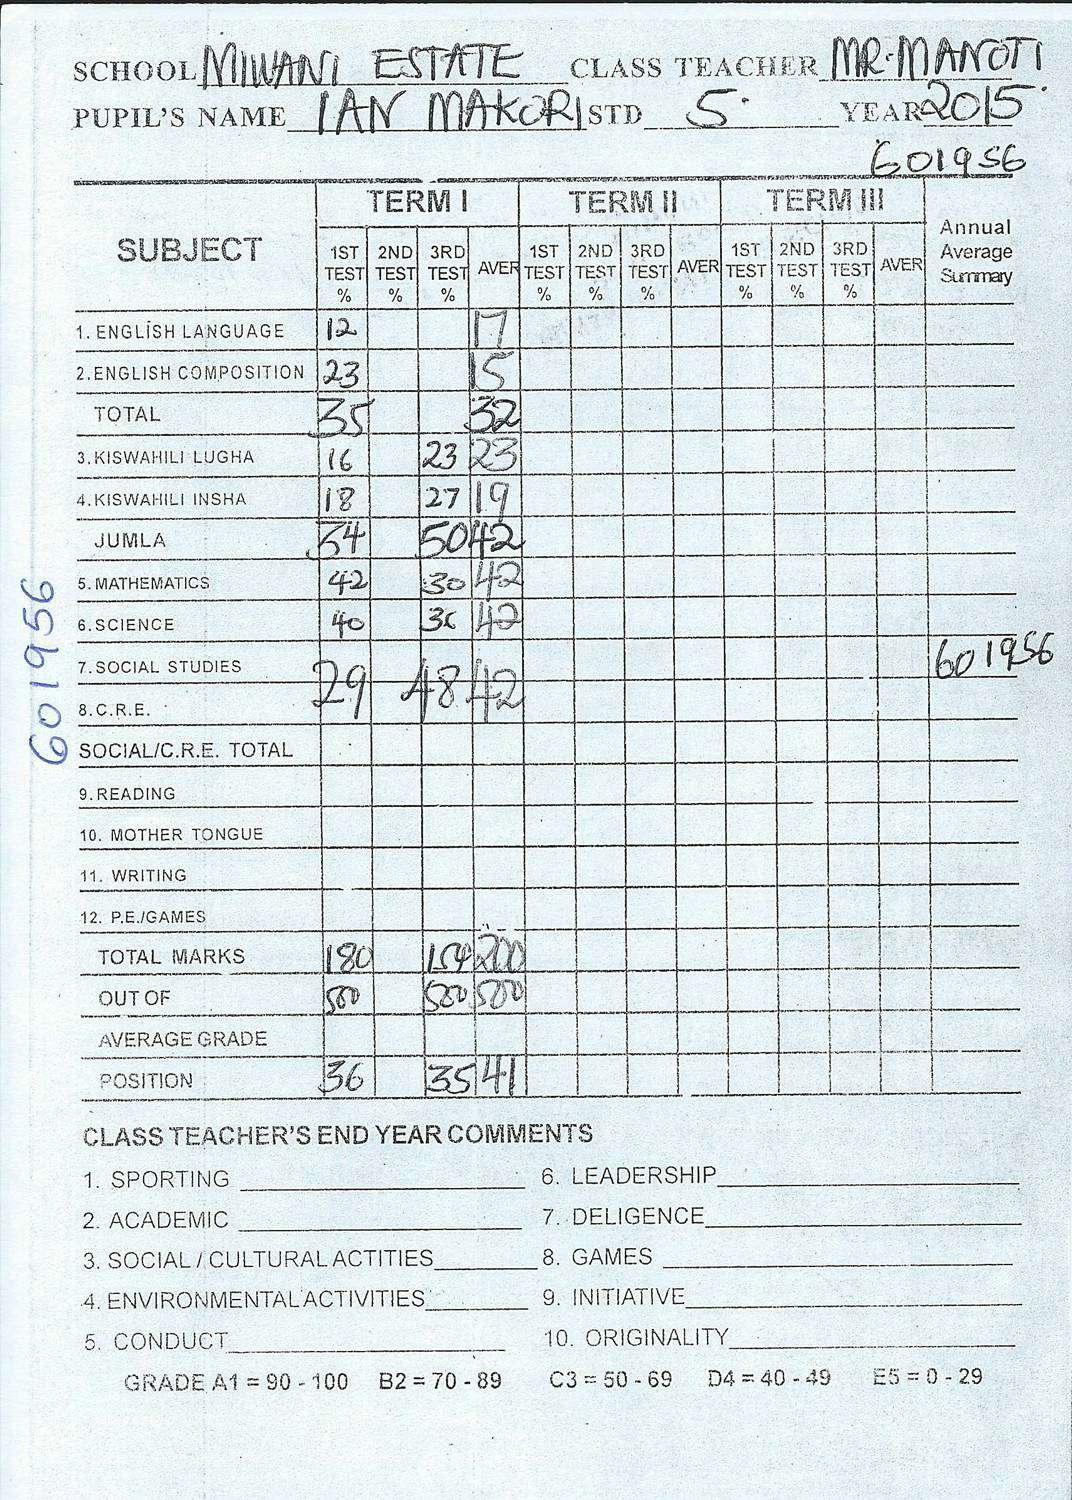 SCHOOL MIWANI ESTATE CLASS TEACHER MR. MANOTI
PUPIL'S NAME IAN MAKORI STD 5. YEAR 2015.
601956
SUBJECT TERM I TERM II TERM III Annual Average Summary
1ST TEST % 2ND TEST % 3RD TEST % AVER 1ST TEST % 2ND TEST % 3RD TEST % AVER 1ST TEST % 2ND TEST % 3RD TEST % AVER
1. ENGLISH LANGUAGE 12 17
2. ENGLISH COMPOSITION 23 15
TOTAL 35 32
3. KISWAHILI LUGHA 16 23 23
4. KISWAHILI INSHA 18 27 19
JUMLA 34 50 42
5. MATHEMATICS 42 30 42
6. SCIENCE 40 42
7. SOCIAL STUDIES 29 48 42 601956
8. C.R.E.
SOCIAL/C.R.E. TOTAL
9. READING
10. MOTHER TONGUE
11. WRITING
12. P.E./GAMES
TOTAL MARKS 180 154 200
OUT OF 500 500 500
AVERAGE GRADE
POSITION 36 35 41
601956
CLASS TEACHER'S END YEAR COMMENTS
1. SPORTING 6. LEADERSHIP
2. ACADEMIC 7. DELIGENCE
3. SOCIAL / CULTURAL ACTITIES 8. GAMES
4. ENVIRONMENTAL ACTIVITIES 9. INITIATIVE
5. CONDUCT 10. ORIGINALITY
GRADE A1 = 90 - 100 B2 = 70 - 89 C3 = 50 - 69 D4 = 40 - 49 E5 = 0 - 29